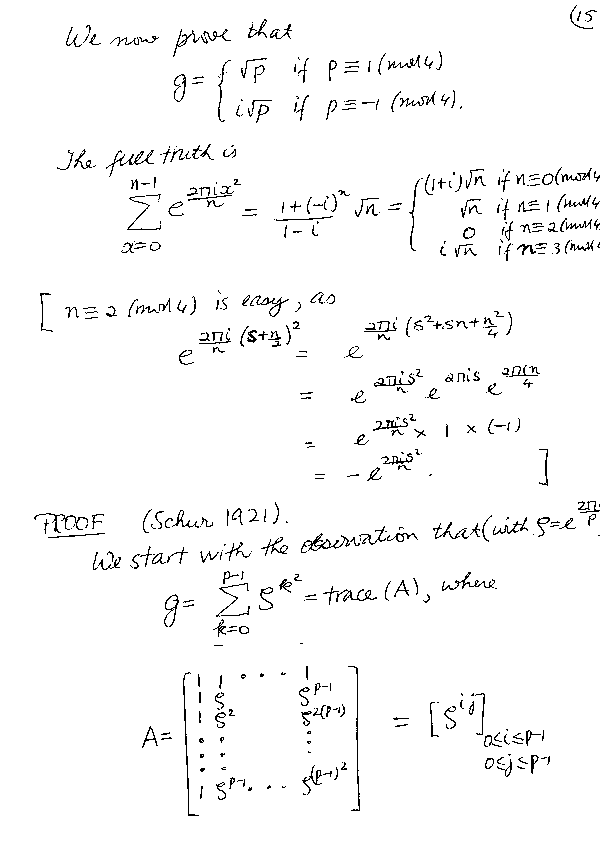 (15
We now prove that
g = { √p if p ≡ 1 (mod 4)
i√p if p ≡ -1 (mod 4).
The full truth is
∑_{x=0}^{n-1} e^{2πix²/n} = (1+(-i)^n)/(1-i) √n = { (1+i)√n if n≡0 (mod 4
√n if n≡1 (mod 4
0 if n≡2 (mod 4
i√n if n≡3 (mod 4
[ n≡2 (mod 4) is easy, as
e^{2πi/n (s+n/2)²} = e^{2πi/n (s²+sn+n²/4)}
= e^{2πis²/n} e^{2πis} e^{2πin/4}
= e^{2πis²/n} × 1 × (-1)
= -e^{2πis²/n}. ]
PROOF (Schur 1921).
We start with the observation that (with ζ=e^{2πi/p}
g = ∑_{k=0}^{p-1} ζ^{k²} = trace (A), where
A = [ 1 1 . . . 1
1 ζ ζ^{p-1}
1 ζ² ζ^{2(p-1)}
: : :
1 ζ^{p-1} . . . ζ^{(p-1)²} ] = [ζ^{ij}]_{0≤i≤p-1
0≤j≤p-1}